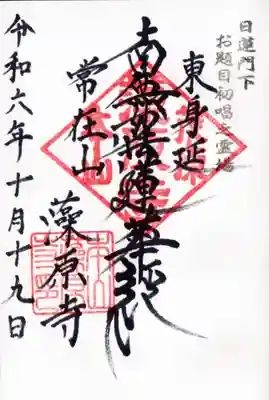 日蓮門下
お題目初唱之霊場
東身延
南無妙法蓮華経
常在山
藻原寺
令和六年十月十九日